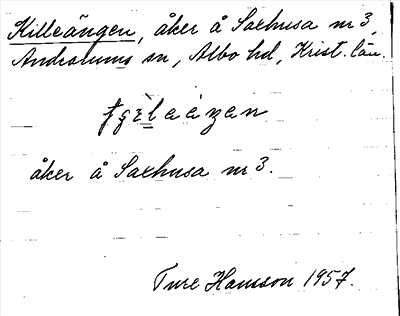 Killeängen, åker å Saxhusa nr 3,
Andrarums sn, Albo hd, Krist. län.
åker å Saxhusa nr 3.
Ture Hansson 1957.